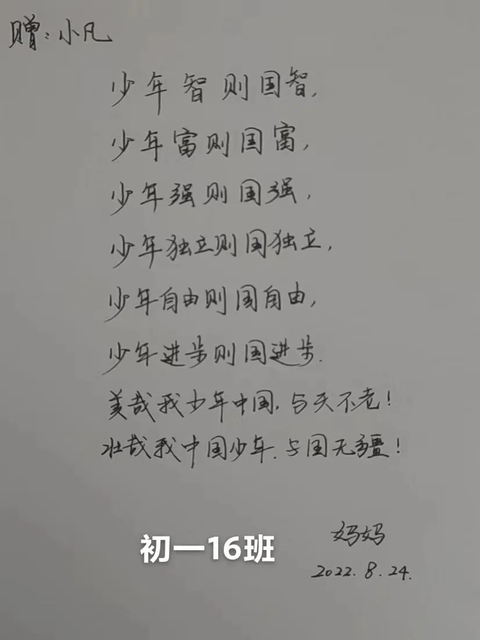 赠：小凡
少年智则国智，
少年富则国富，
少年强则国强，
少年独立则国独立，
少年自由则国自由，
少年进步则国进步.
美哉我少年中国，与天不老！
壮哉我中国少年，与国无疆！
妈妈
初一16班
2022.8.24.